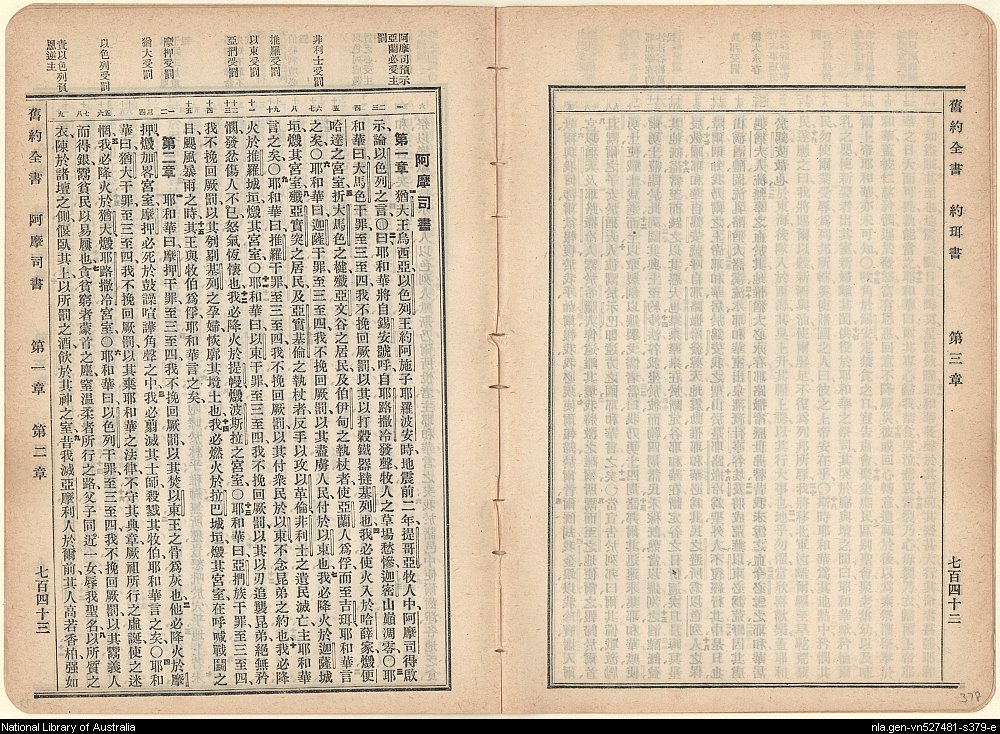 舊約全書 約珥書 第三章 七百四十二
378
阿摩司預示
亞蘭必受主
罰
非利士受罰
推羅受罰
以東受罰
亞捫受罰
摩押受罰
猶大受罰
以色列受罰
責以色列負
恩逆主
阿摩司書
第一章 猶大王烏西亞、以色列王約阿施子耶羅波安時、地震前二年、提哥亞牧人中阿摩司得啟
示、論以色列之言○曰、耶和華將自錫安號呼、自耶路撒冷發聲、牧人之草場愁慘、迦密山巔凋零○耶
和華曰、大馬色干罪、至三至四、我不挽回厥罰、以其以打穀鐵器撻基列也、我必使火入於哈薛家、燬便
哈達之宮室、折大馬色之楗、殲亞文谷之居民、及伯伊甸之執杖者、使亞蘭人爲俘、而至吉珥、耶和華言
之矣○耶和華曰、迦薩干罪、至三至四、我不挽回厥罰、以其盡虜人民、付於以東也、我必降火於迦薩城
垣、燬其宮室、殲亞實突之居民、及亞實基倫之執杖者、反手以攻以革倫、非利士之遺民滅亡、主耶和華
言之矣○耶和華曰、推羅干罪、至三至四、我不挽回厥罰、以其付衆民於以東、不念昆弟之約也、我必降
火於推羅城垣、燬其宮室○耶和華曰、以東干罪、至三至四、我不挽回厥罰、以其以刃追襲昆弟、絕無矜
憫、發忿傷人不已、怒氣恆懷也、我必降火於提幔、燬波斯拉之宮室○耶和華曰、亞捫族干罪、至三至四、
我不挽回厥罰、以其刳剔基列之孕婦、恢廓其境土也、我必燃火於拉巴城垣、燬其宮室、在呼喊戰鬭之
日、颶風暴雨之時、其王與牧伯爲俘、耶和華言之矣、
第二章 耶和華曰、摩押干罪、至三至四、我不挽回厥罰、以其焚以東王之骨爲灰也、他必降火於摩
押、燬加畧宮室、摩押必死於鼓譟喧譁角聲之中、我必翦滅其士師、殺戮其牧伯、耶和華言之矣○耶和
華曰、猶大干罪、至三至四、我不挽回厥罰、以其棄耶和華之法律、不守其典章、厥祖所行之虛誕、使之迷
惘、我必降火於猶大、燬耶路撒冷宮室○耶和華曰、以色列干罪、至三至四、我不挽回厥罰、以其鬻義人
而得銀、鬻貧民以易屨也、貪貧窮者蒙首之塵、窒溫柔者所行之路、父子同近一女、辱我聖名、以所質之
衣、陳於諸壇之側、偃臥其上、以所罰之酒、飲於其神之室、昔我滅亞摩利人於爾前、其人高若香柏、強如
舊約全書 阿摩司書 第一章 第二章 七百四十三
National Library of Australia
nla.gen-vn527481-s379-e